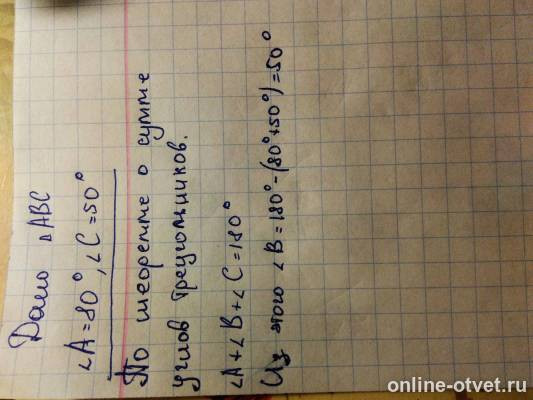 Дано △ABC
∠A=80°, ∠C=50°
По теореме о сумме
углов треугольников.
∠A+∠B+∠C=180°
Из этого ∠B=180°-(80°+50°)=50°
online-otvet.ru